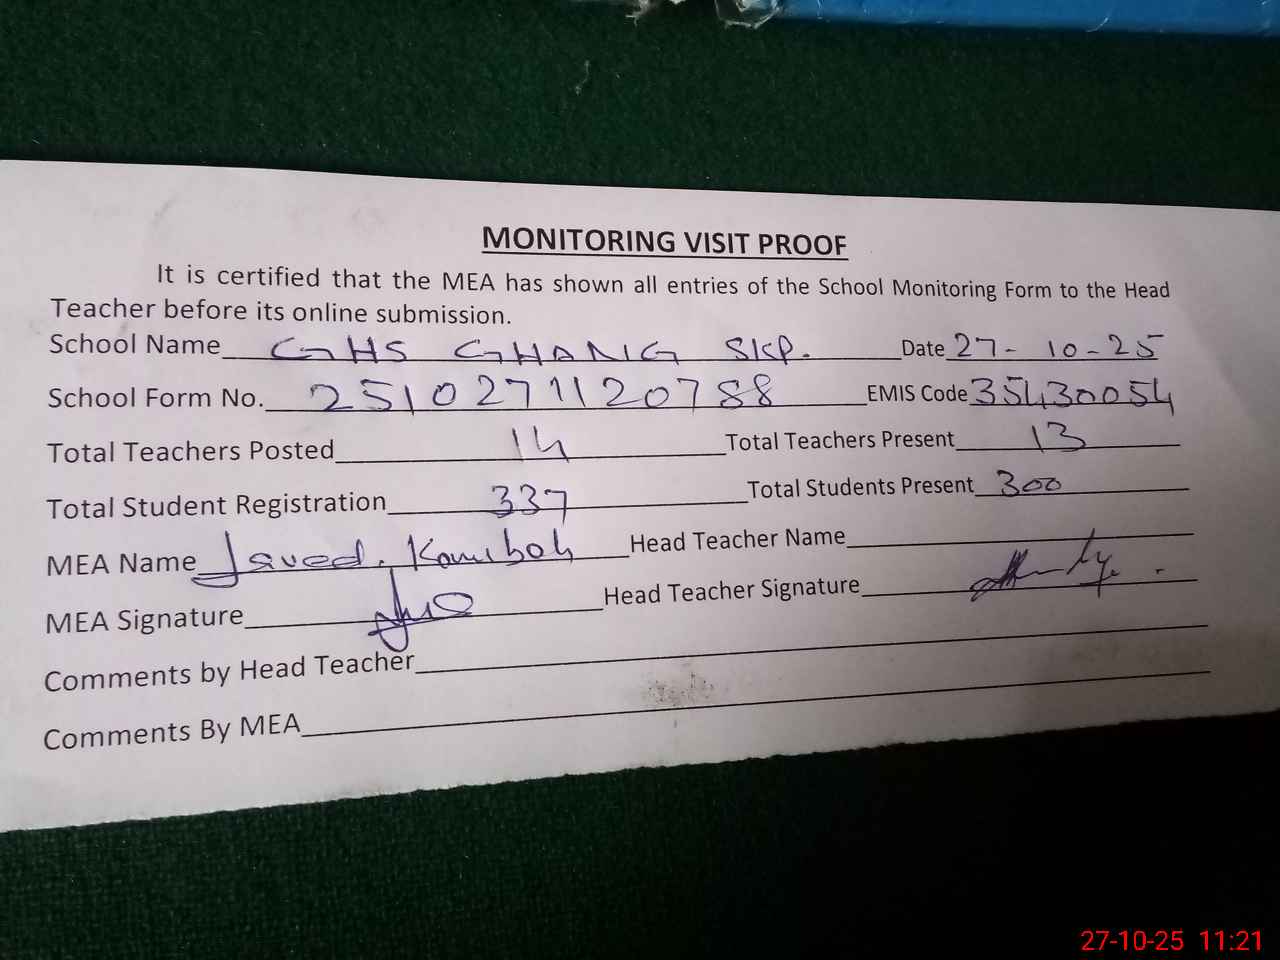 MONITORING VISIT PROOF
It is certified that the MEA has shown all entries of the School Monitoring Form to the Head
Teacher before its online submission.
School Name GHS GHANG SKP. Date 27-10-25
School Form No. 25102711120788 EMIS Code 35430054
Total Teachers Posted 14 Total Teachers Present 13
Total Student Registration 337 Total Students Present 300
MEA Name Javed. Kamboh Head Teacher Name
MEA Signature Head Teacher Signature
Comments by Head Teacher
Comments By MEA
27-10-25 11:21